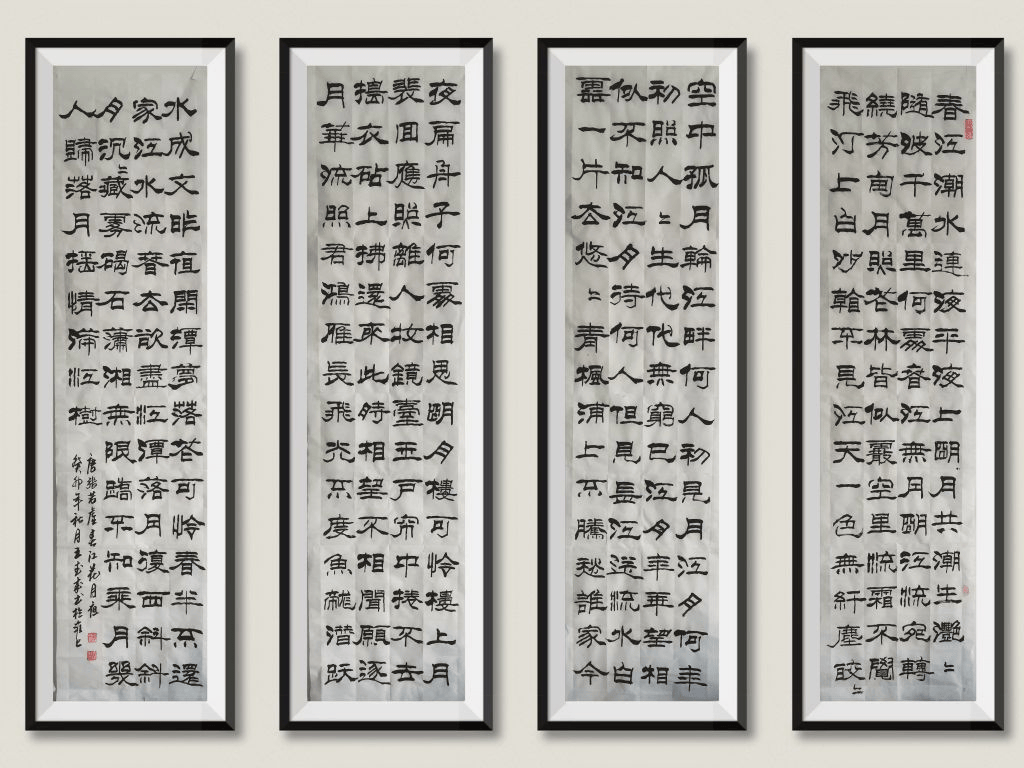 春江潮水連海平海上明月共潮生灩〻
隨波千萬里何處春江無月明江流宛轉
繞芳甸月照花林皆似霰空里流霜不覺
飛汀上白沙看不見江天一色無纖塵皎〻
空中孤月輪江畔何人初見月江月何年
初照人〻生代代無窮已江月年年望相
似不知江月待何人但見長江送流水白
雲一片去悠〻青楓浦上不勝愁誰家今
夜扁舟子何處相思明月樓可憐樓上月
裴回應照離人妝鏡臺玉戶帘中捲不去
擣衣砧上拂還來此時相望不相聞願逐
月華流照君鴻雁長飛光不度魚龍潛躍
水成文昨夜閑潭夢落花可憐春半不還
家江水流春去欲盡江潭落月復西斜斜
月沉〻藏霧碣石瀟湘無限路不知乘月幾
人歸落月搖情滿江樹
唐張若虛春江花月夜
癸卯年月書於上